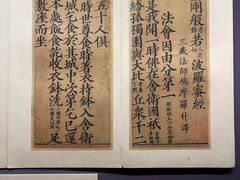 剛般若波羅蜜經
三藏法師鳩摩羅什譯
法會因由分第一
是我聞一時佛在舍衛國祇
給孤獨園與大比丘衆千二
五十人俱
時世尊食時著衣持鉢入舍衛
城乞食於其城中次第乞已還
本處飯食訖收衣鉢洗足
敷座而坐